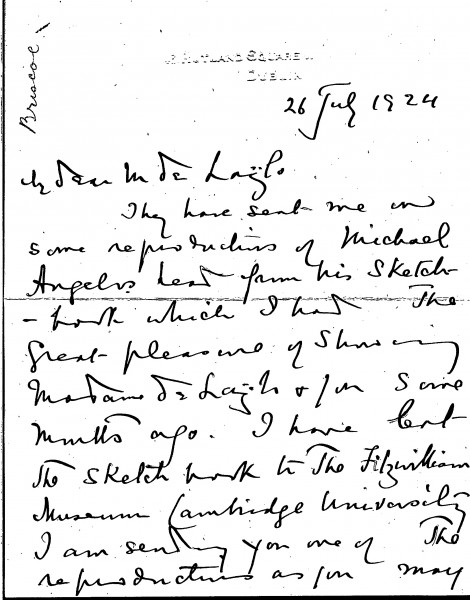 Briscoe.
RUTLAND SQUARE
DUBLIN
26 July 1924
My dear M de Laszlo.
They have sent me
some reproductions of Michael
Angelo's head from his Sketch
- book which I had The
great pleasure of Showing
Madame de Laszlo & you some
months ago. I have lent
The Sketch book to The Fitzwilliam
Museum Cambridge University
I am sending you one of The
reproductions as you may